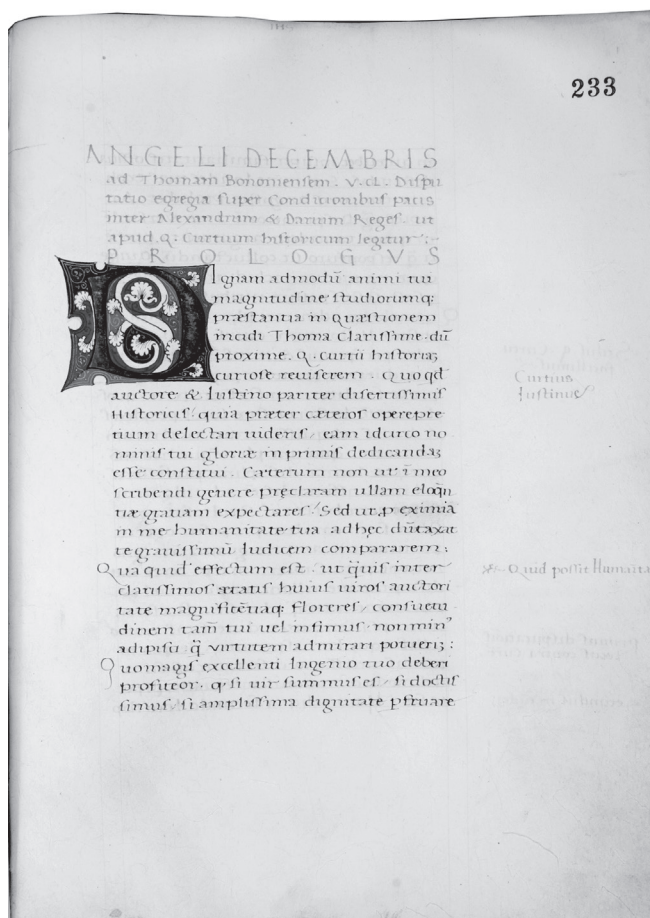 233
ANGELI DECEMBRIS
ad Thomam Bononiensem . V. CL. Dispu
tatio egregia super Conditionibus pacis
inter Alexandrum & Darium Reges. ut
apud .Q. Curtium historicum legitur :-
PROLOGVS
DIgnam admodũ animi tui
magnitudine studiorumq;
præstantia in Quæstionem
incidi Thoma Clarissime. dũ
proxime . Q. curtii historiaȝ
curiose reuiserem . Quo qd
auctore & Iustino pariter disertissimis
Historicis quia præter cæteros operepre
tium delectari uideris, eam idcirco no
minis tui gloriæ in primis dedicandaȝ
esse constitui . Cæterum non ut ĩ meo
scribendi genere pręclaram ullam eloqñ
tiæ gratiam expectares / Sed ut ꝓ eximia
in me humanitate tua ad hęc dũtaxat
te grauissimũ Iudicem compararem :
Qua quid effectum est . ut q̃uis inter
clarissimos ætatis huius uiros auctori
tate magnificẽtiaq; floreres / consuetu
dinem tam̃ tui uel infimus non min⁹
adipisci q̃ virtutem admirari potueriȝ :
Quo magis excellenti Ingenio tuo deberi
profiteor . ꝙ si uir summus es . si doctis
simus / si amplissima dignitate
Curtius
Iustinus
Quid possit Humanita